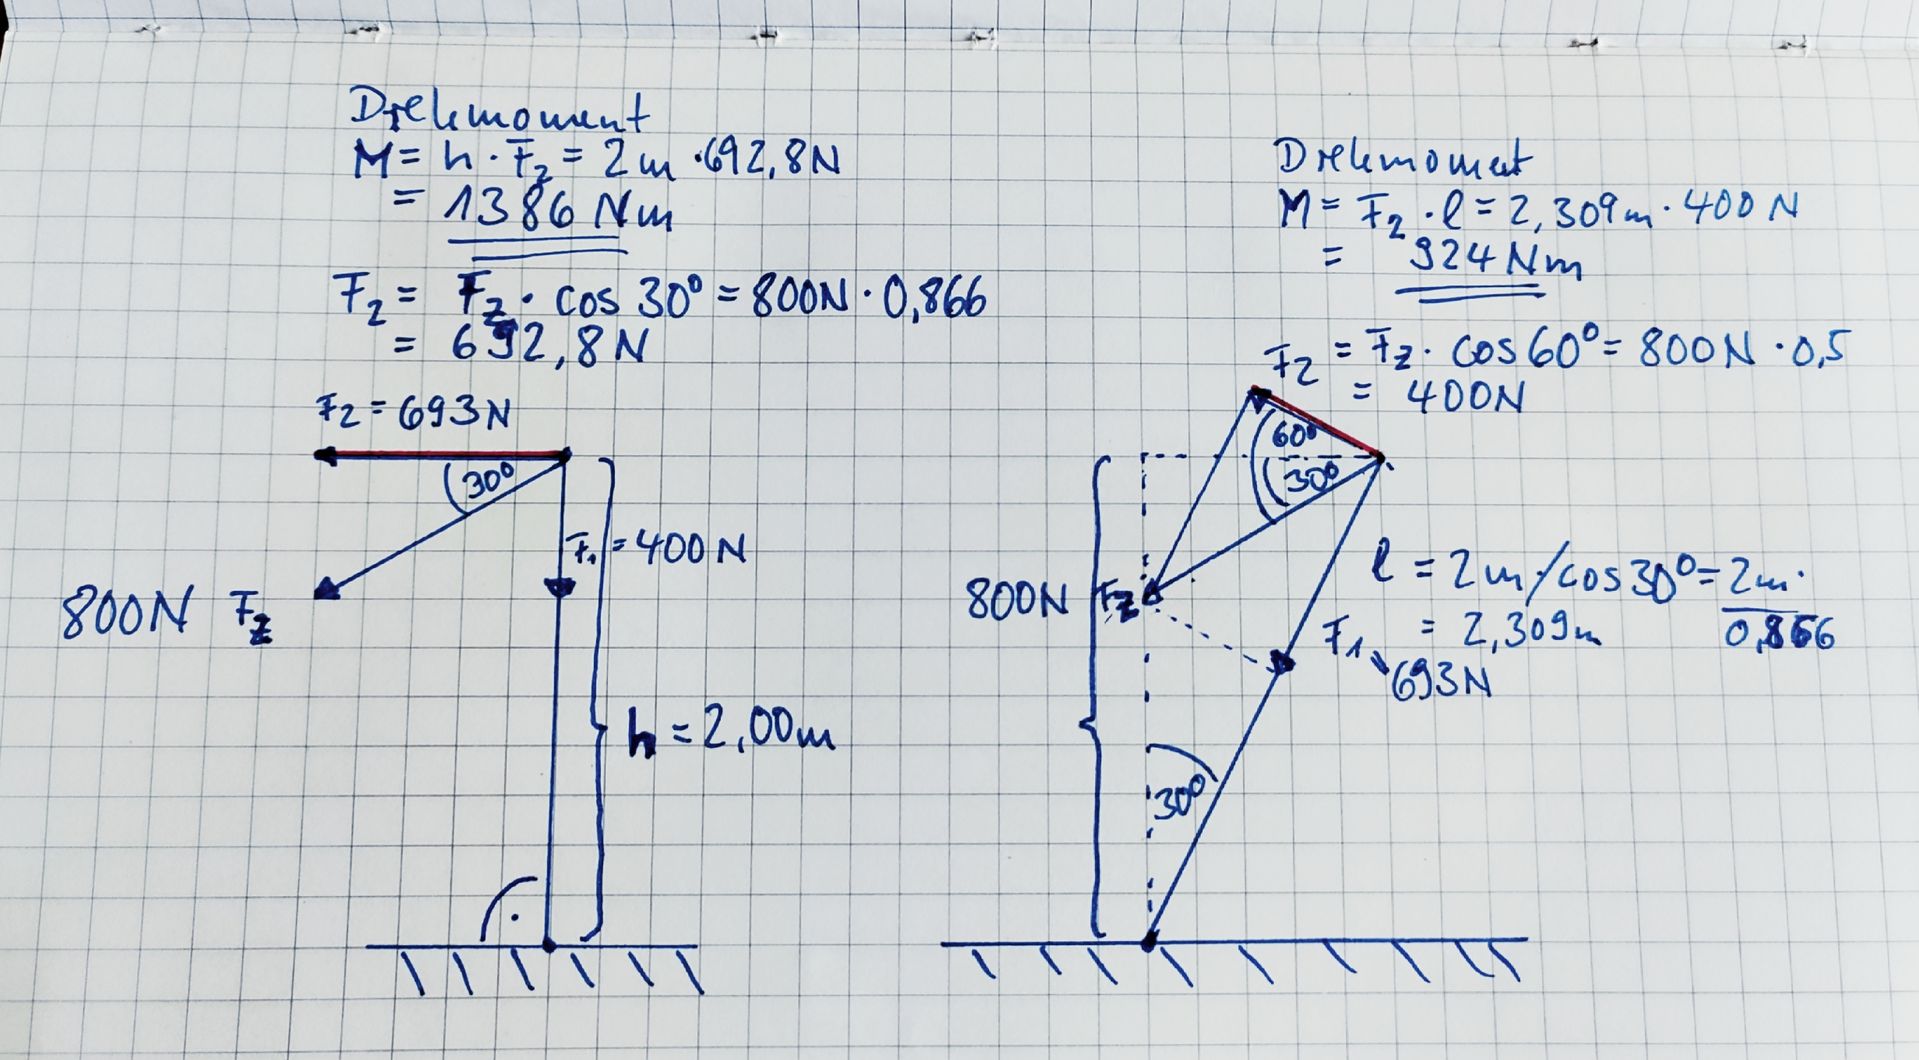 Drehmoment
M = h · F₂ = 2m · 692,8N
= 1386 Nm
F₂ = F_z · cos 30° = 800N · 0,866
= 692,8N
F₂ = 693N
30°
F₁ = 400N
800N F_z
h = 2,00m
Drehmoment
M = F₂ · l = 2,309m · 400N
= 924 Nm
F₂ = F_z · cos 60° = 800N · 0,5
= 400N
60°
30°
800N F_z
l = 2m/cos 30° = 2m / 0,866
= 2,309m
F₁
693N
30°